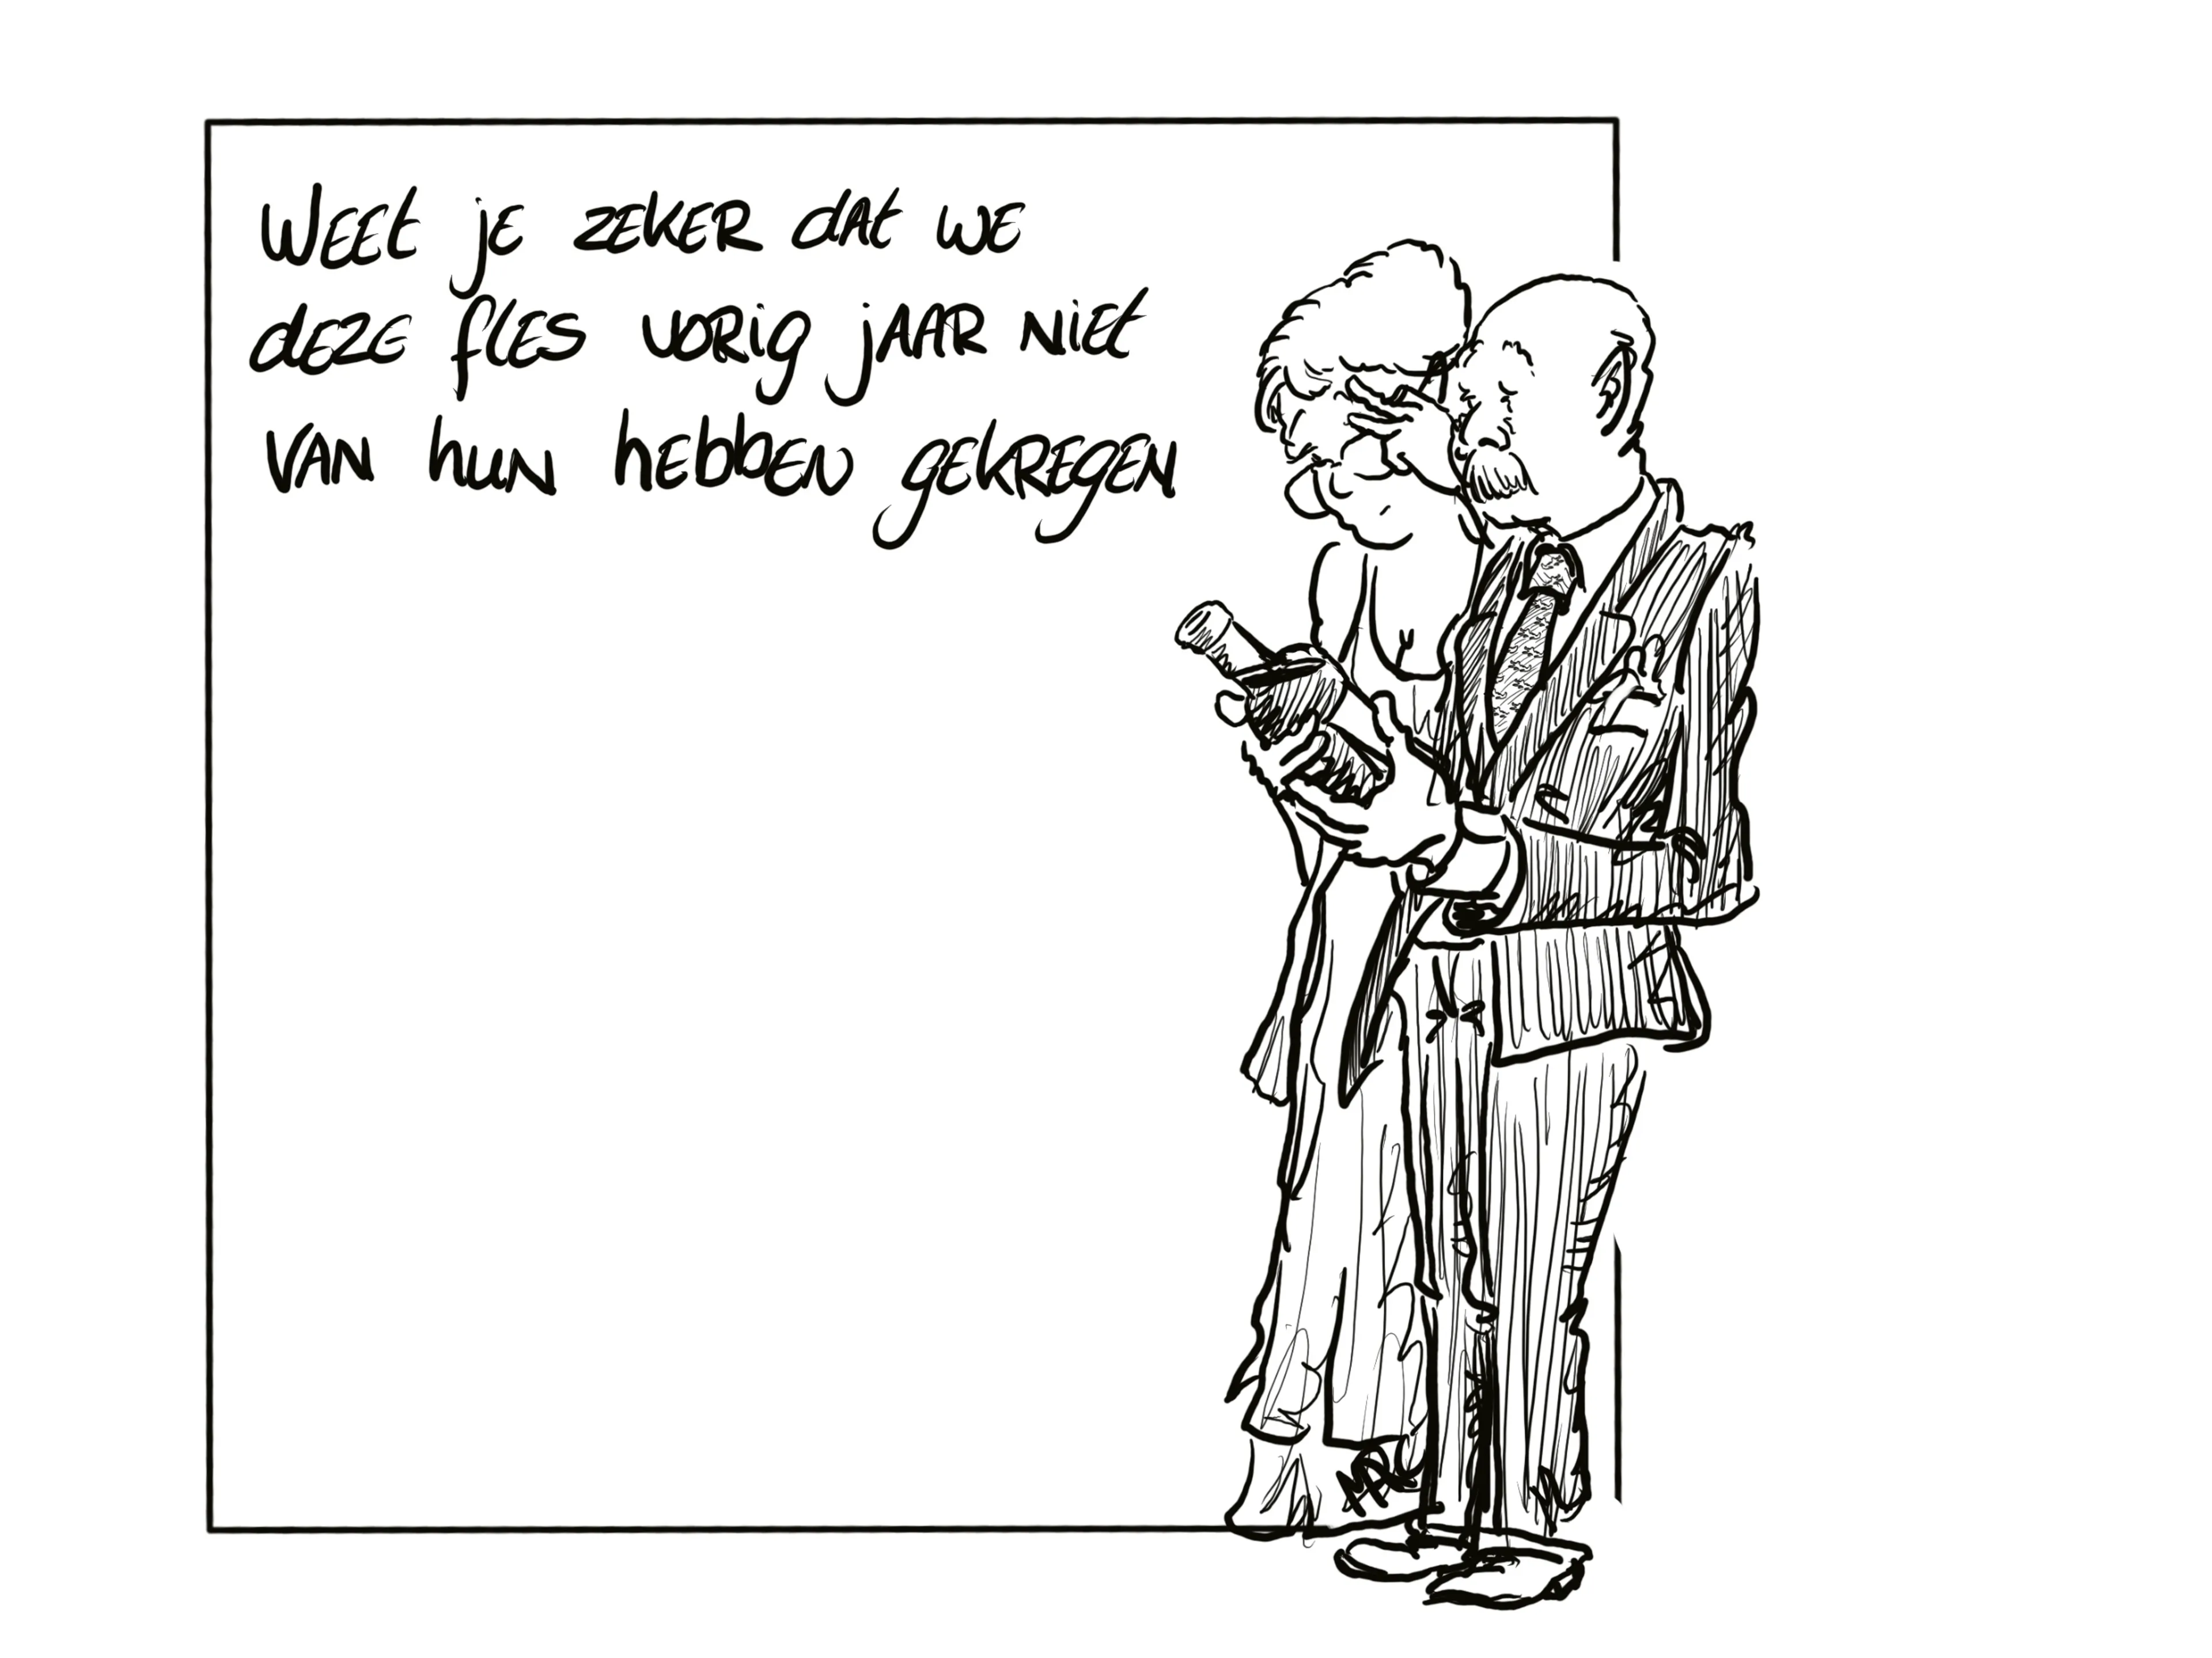 Weet je zeker dat we
deze fles vorig jaar niet
van hun hebben gekregen